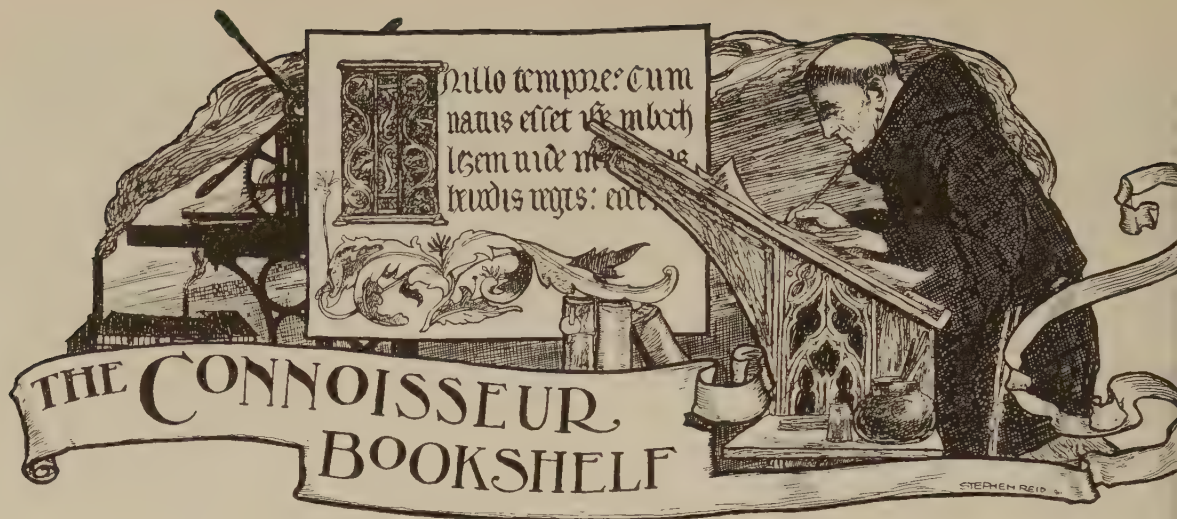 In illo tempore: Cum
natus esset ihc in beth
leem iude in
herodis regis: ecce
THE CONNOISSEUR
BOOKSHELF
STEPHEN REID